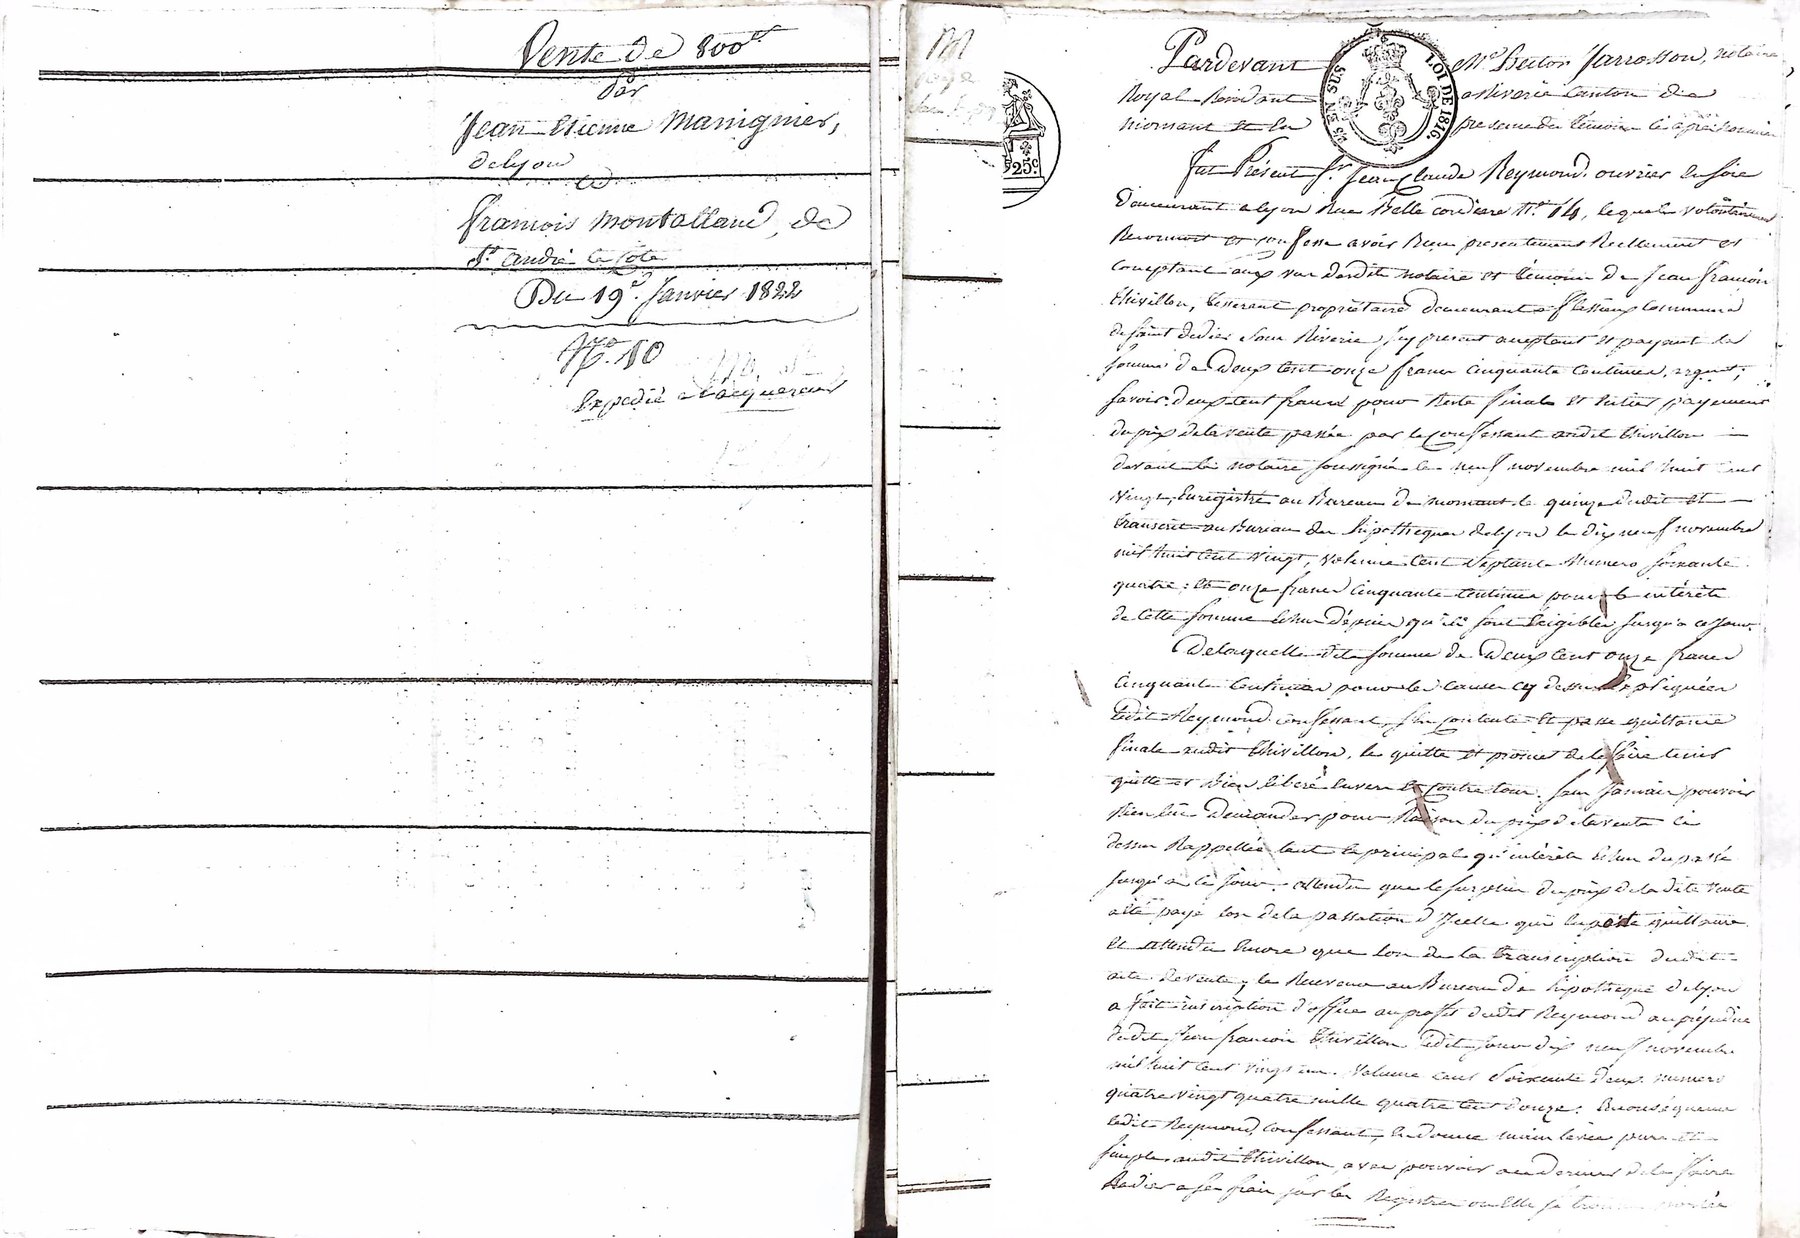 Vente de 800 fr
Par
Jean Etienne Manignier,
de lyon
a
françois Montalland, de
St. andré la Côte
Du 19e. Janvier 1822
No. 10
Expedié a l'acquereur
M
25c.
EN SUS
LOI DE 1816.
Pardevant Me. Jarrosson, notaire
Royal Résidant a Riverie Canton de
Mornant et en presence des témoins ci après nommés
fut Présent Sr. Jean Claude Reymond, ouvrier en soie
Demeurant a lyon Rue Belle cordiere No. 14, lequel volontairement
Reconnoit et confesse avoir Reçu presentement Reellement et
comptant aux vue desdits notaire et témoins de Jean françois
thivillon, tisserant propriétaire demeurant a flessieux commune
de saint didier sous Riverie icy present acceptant et payant la
somme de Deux cent onze francs cinquante centimes, argent;
savoir: deux cent francs pour Reste final et entier payement
du prix de la vente passée par le confessant audit thivillon
devant le notaire soussigné le neuf novembre mil huit cent
vingt, Enregistré au Bureau de mornant le quinze dudit et
transcrit au Bureau des hipotheques de lyon le dix neuf novembre
mil huit cent vingt, volume cent septante numero soixante
quatre: et onze francs cinquante centimes pour le intérêts
de cette somme échus depuis qu'ils sont Exigibles jusqu'a ce jour.
De laquelle dite somme de Deux cent onze francs
cinquante centimes pour les causes cy dessus Expliquées
ledit Reymond confessant, s'en contente et passe quittance
finale audit thivillon, le quitte et promet de le faire tenir
quitte et bien libéré envers et contre tous, sans jamais pouvoir
Rien lui Demander pour Raison du prix de la vente ci
dessus Rappellée tant le principal qu'intérêts échus du passé
jusqu'a ce jour, attendu que le surplus du prix de la dite vente
a été payé lors de la passation d'Icelle qui en porte quittance
et attendu encore que lors de la transcription dudit
acte de vente, le Receveur au Bureau des hipotheques de lyon
a fait inscription d'office au profit dudit Reymond au préjudice
dudit Jean françois thivillon ledit jour dix neuf novembre
mil huit cent vingt un. Volume cent soixante deux numero
quatre vingt quatre mille quatre cent douze: En conséquence
ledit Reymond, confessant, en donne main levée pure et
simple audit thivillon, avec pouvoir a ce dernier de la faire
Radier a ses frais sur les Registres ou Elle se trouve portée